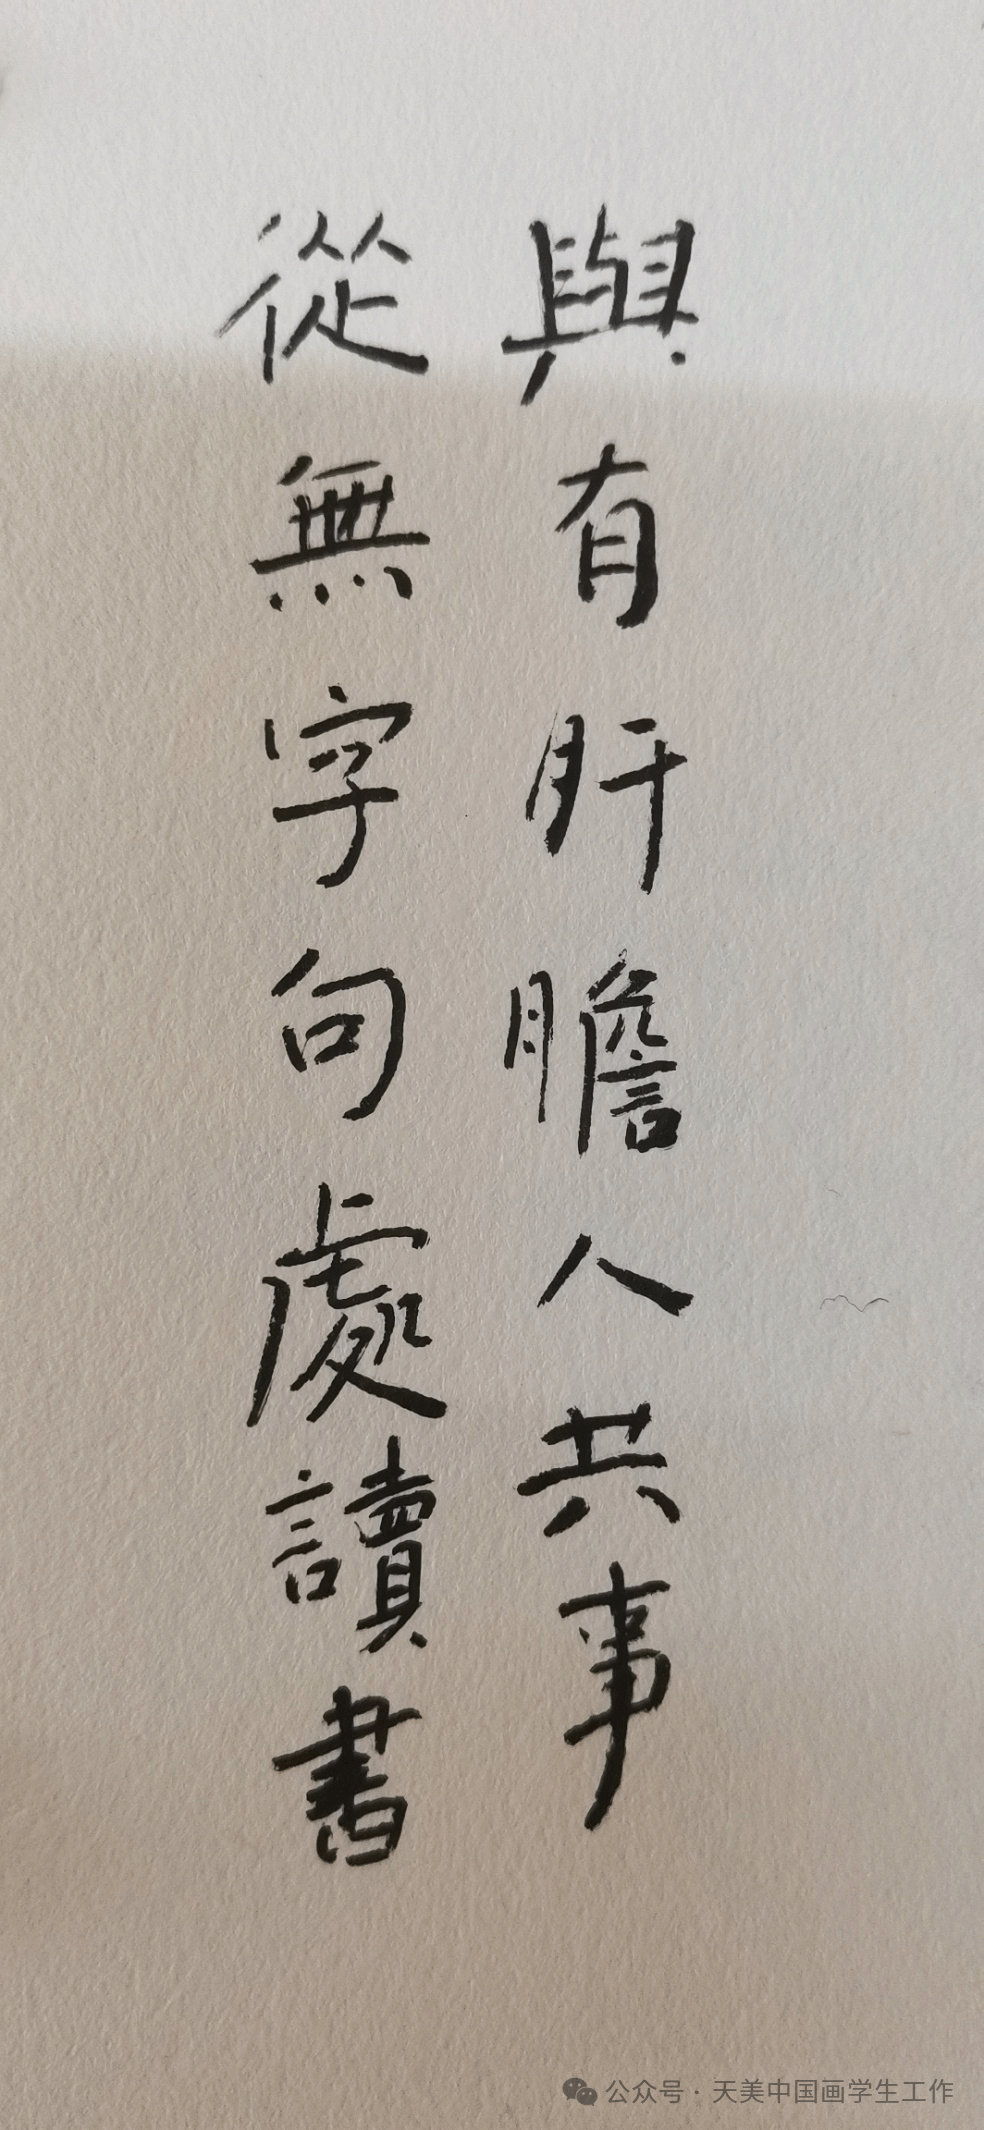 與有肝膽人共事
從無字句處讀書
公众号·天美中国画学生工作